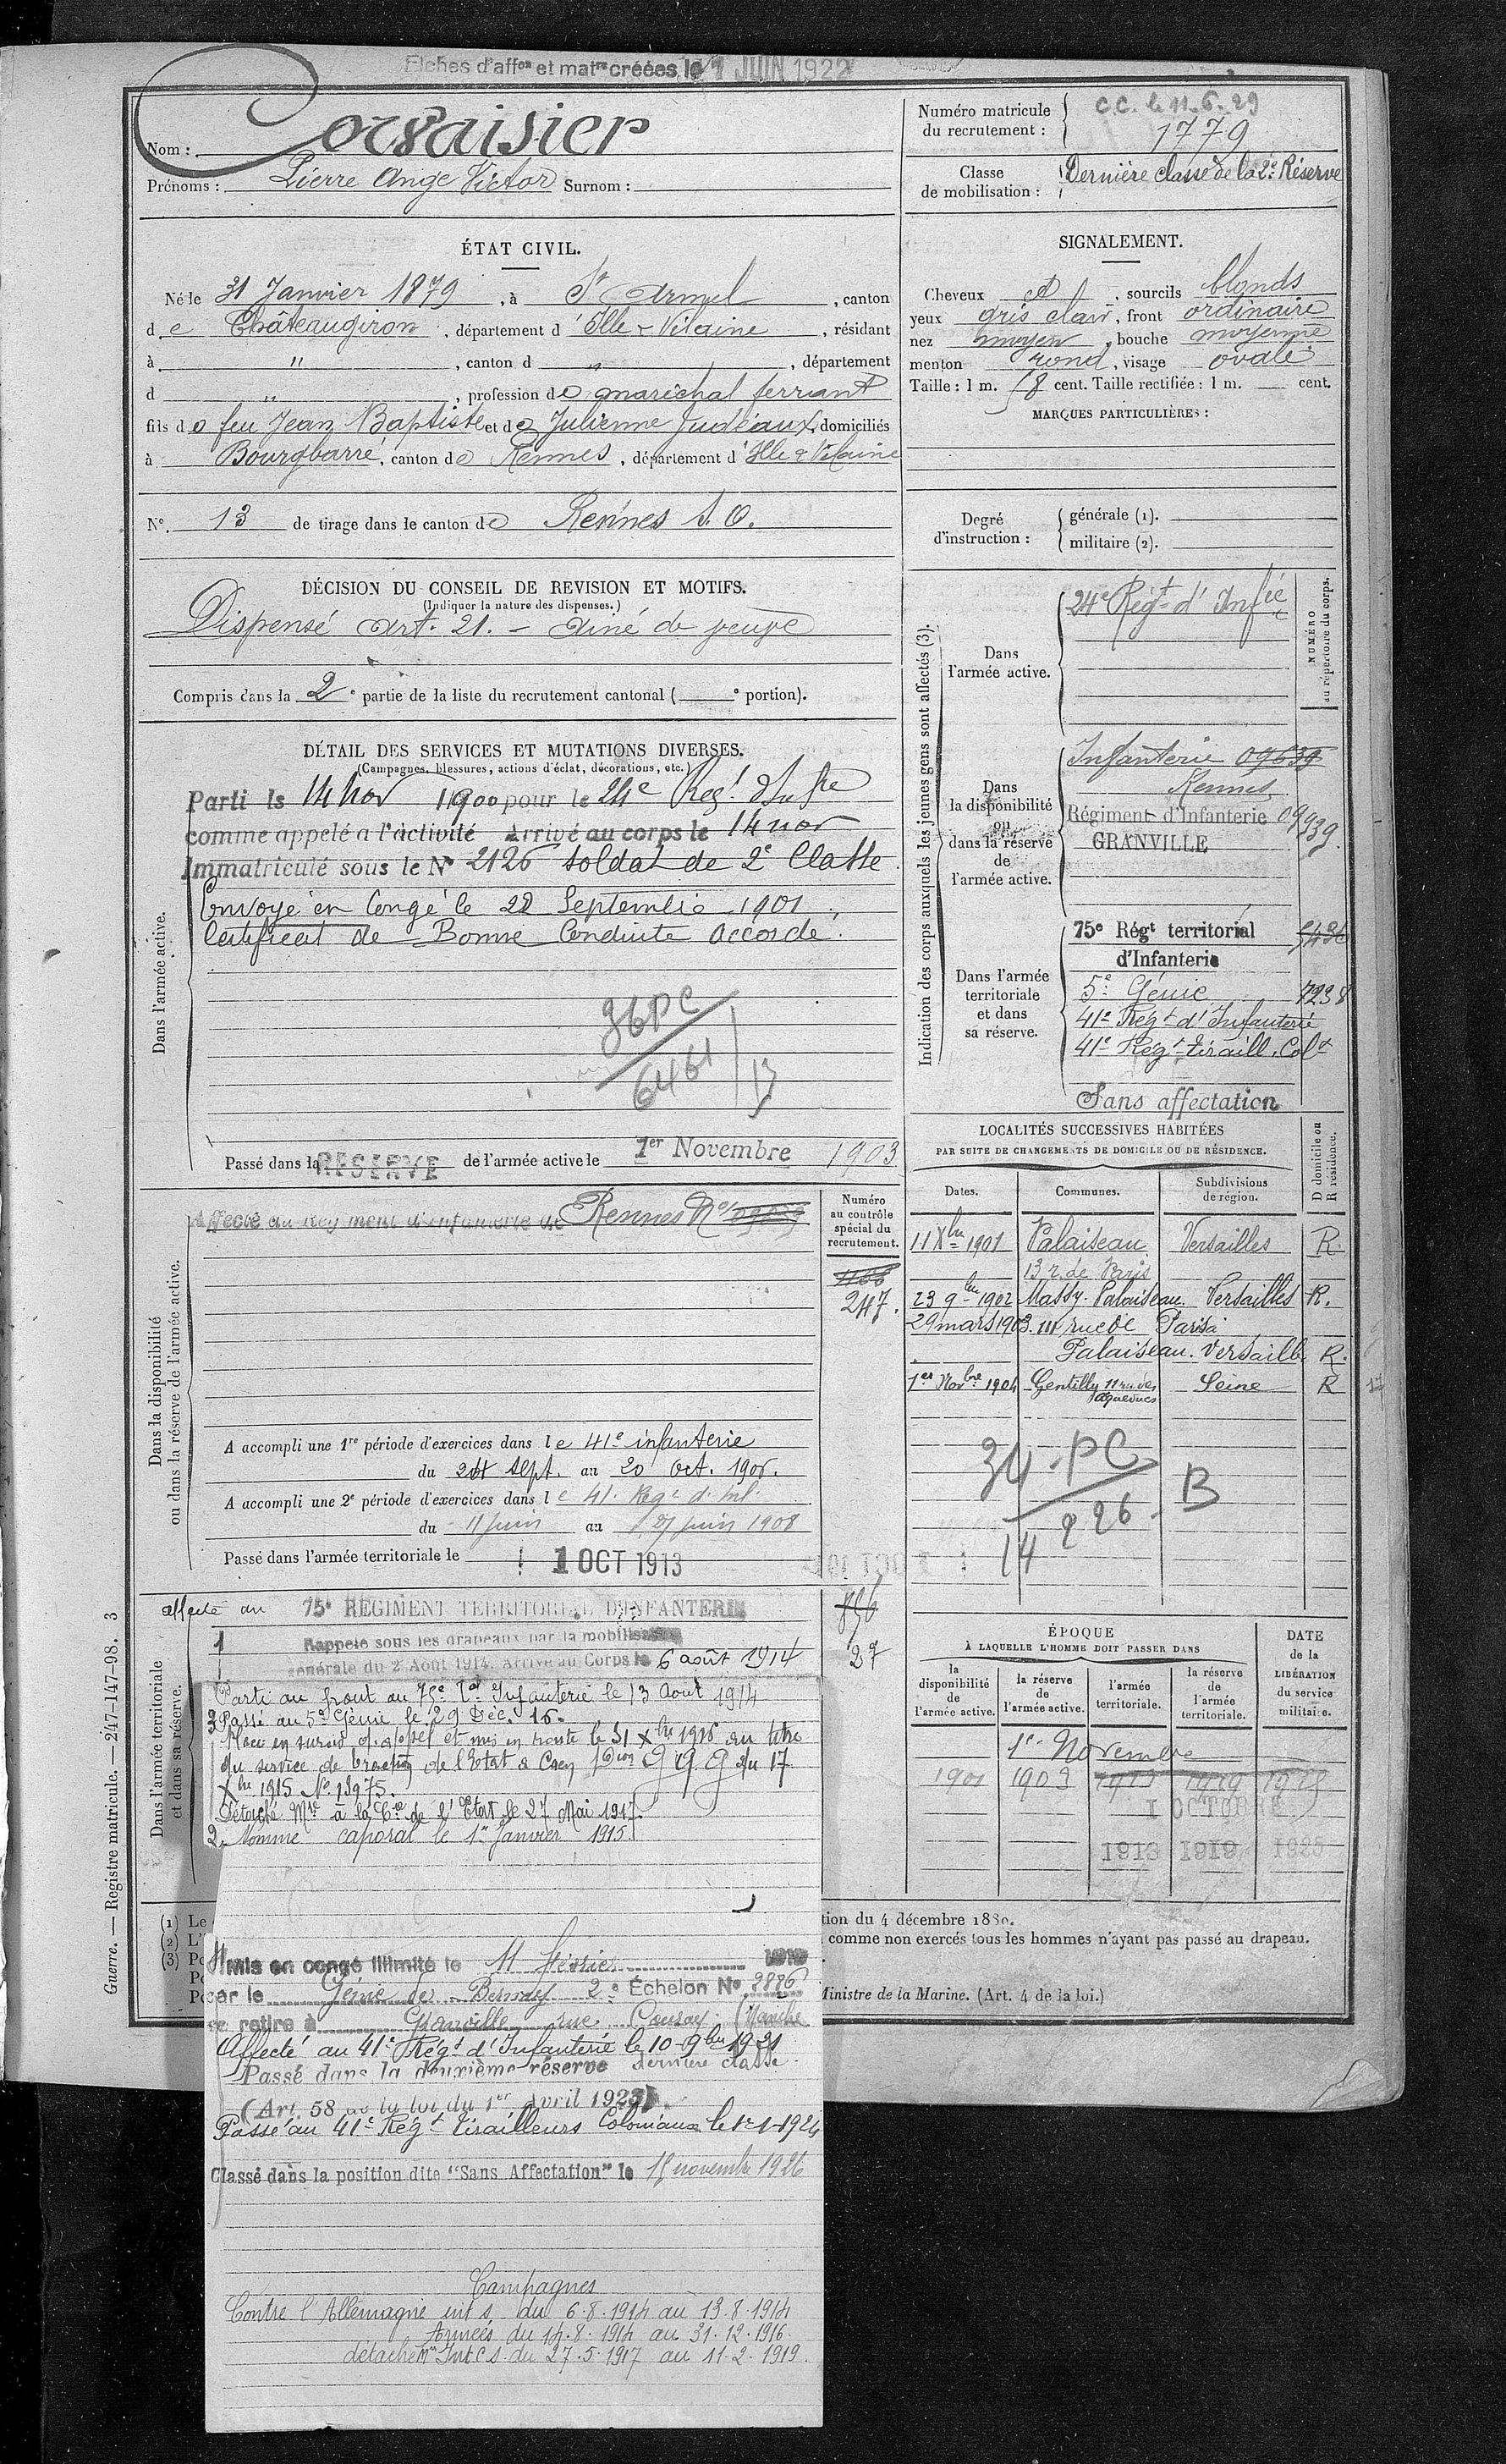 Fiches d'affon et matre créées le 1 JUIN 1922
Nom : Corvaisier
Prénoms : Pierre Ange Victor Surnom :
Numéro matricule du recrutement : C.C. le 11.6.29
1779
Classe de mobilisation : Dernière classe de la 2e Réserve
ÉTAT CIVIL.
Né le 31 Janvier 1879, à St Armel, canton
de Châteaugiron, département d'Ille & Vilaine, résidant
à ", canton d ", département
d ", profession de maréchal ferrant
fils de feu Jean Baptiste et de Julienne Judéaux, domiciliés
à Bourgbarré, canton de Rennes, département d'Ille & Vilaine
N° 13 de tirage dans le canton de Rennes S.O.
SIGNALEMENT.
Cheveux et, sourcils blonds
yeux gris clair, front ordinaire
nez moyen, bouche moyenne
menton rond, visage ovale
Taille : 1 m. 58 cent. Taille rectifiée : 1 m. — cent.
MARQUES PARTICULIÈRES :
Degré d'instruction :
générale (1).
militaire (2).
DÉCISION DU CONSEIL DE REVISION ET MOTIFS.
(Indiquer la nature des dispenses.)
Dispensé Art. 21. - Aîné de veuve
Compris dans la 2e partie de la liste du recrutement cantonal ( e portion).
DÉTAIL DES SERVICES ET MUTATIONS DIVERSES.
(Campagnes, blessures, actions d'éclat, décorations, etc.)
Dans l'armée active.
Parti le 14 nov 1900 pour le 24e Regt d'Infre
comme appelé a l'activité Arrivé au corps le 14 nov
Immatriculé sous le N° 2126 soldat de 2e Classe
Envoyé en Congé le 22 Septembre 1901.
Certificat de Bonne Conduite Accordé.
36 PC
6461
13
Passé dans la RESERVE de l'armée active le 1er Novembre 1903
Indication des corps auxquels les jeunes gens sont affectés (3).
NUMÉRO au répertoire du corps.
Dans l'armée active.
24e Régt d'Infie
Dans la disponibilité ou dans la réserve de l'armée active.
Infanterie 09639
Rennes
Régiment d'Infanterie 09939.
GRANVILLE
Dans l'armée territoriale et dans sa réserve.
75e Régt territorial
d'Infanterie
5e Génie 7238
41e Régt d'Infanterie
41e Régt tiraill. Colx
Sans affectation
LOCALITÉS SUCCESSIVES HABITÉES
PAR SUITE DE CHANGEMENTS DE DOMICILE OU DE RÉSIDENCE.
D domicile ou R résidence.
Dates. Communes. Subdivisions de région.
11 Xbre 1901 Palaiseau Versailles R.
13 r. de Paris
23 9bre 1902 Massy-Palaiseau. Versailles R.
29 mars 1903. 111 rue de Paris à
Palaiseau. Versaill. R.
1er Novbre 1904 Gentilly 11 rue des Seine R
34. PC
226. B
14
Dans la disponibilité ou dans la réserve de l'armée active.
Numéro au contrôle spécial du recrutement.
Affecté au Régiment d'infanterie de Rennes No
247.
A accompli une 1re période d'exercices dans le 41e infanterie
du 24 sept. au 20 Oct. 1906.
A accompli une 2e période d'exercices dans le 41. Regt d'Inf.
du 11 juin au 27 juin 1908
Passé dans l'armée territoriale le 1 OCT 1913
Dans l'armée territoriale et dans sa réserve.
affecté au 75e REGIMENT TERRITORIAL D'INFANTERIE
856
1 Rappelé sous les drapeaux par la mobilisation
générale du 2 Août 1914. Arrivé au Corps le 6 août 1914
27
Parti au front au 75e Tal Infanterie le 13 Aout 1914
3 Passé au 5e Génie le 29 Déc. 16.
Placé en sursis d'appel et mis en route le 31 Xbre 1916 au titre
du service de traction de l'Etat à Caen du 17
Xbre 1915 No 13975.
Détaché Mre à la Cie de l'Etat le 27 Mai 1917.
2. Nommé caporal le 1er Janvier 1915.
4 mis en congé illimité le 11 février 1919
par le Génie de Bernay 2e Échelon N° 2886
se retire à Granville rue Couray (Manche
Affecté au 41e Régt d'Infanterie le 10-9bre 1921
Passé dans la deuxième réserve dernière classe.
(Art. 58 de la loi du 1er Avril 1923).
Passé au 41e Régt Tirailleurs Coloniaux le 1er-1-1924
Classé dans la position dite "Sans Affectation" le 15 novembre 1926
Campagnes
Contre l'Allemagne int s du 6.8.1914 au 13.8.1914
Armées du 14.8.1914 au 31.12.1916.
détaché Mre Int. C s. du 27.5.1917 au 11.2.1919.
ÉPOQUE
À LAQUELLE L'HOMME DOIT PASSER DANS
DATE de la LIBÉRATION du service militaire.
la disponibilité de l'armée active. la réserve de l'armée active. l'armée territoriale. la réserve de l'armée territoriale.
1er Novembre
1901 1903 1913 1919
1 OCTOBRE
1913 1919 1925
(1) Le
(2) L'
(3) Po
tion du 4 décembre 1889.
comme non exercés tous les hommes n'ayant pas passé au drapeau.
Ministre de la Marine. (Art. 4 de la loi.)
Guerre. — Registre matricule. — 247-147-98. 3